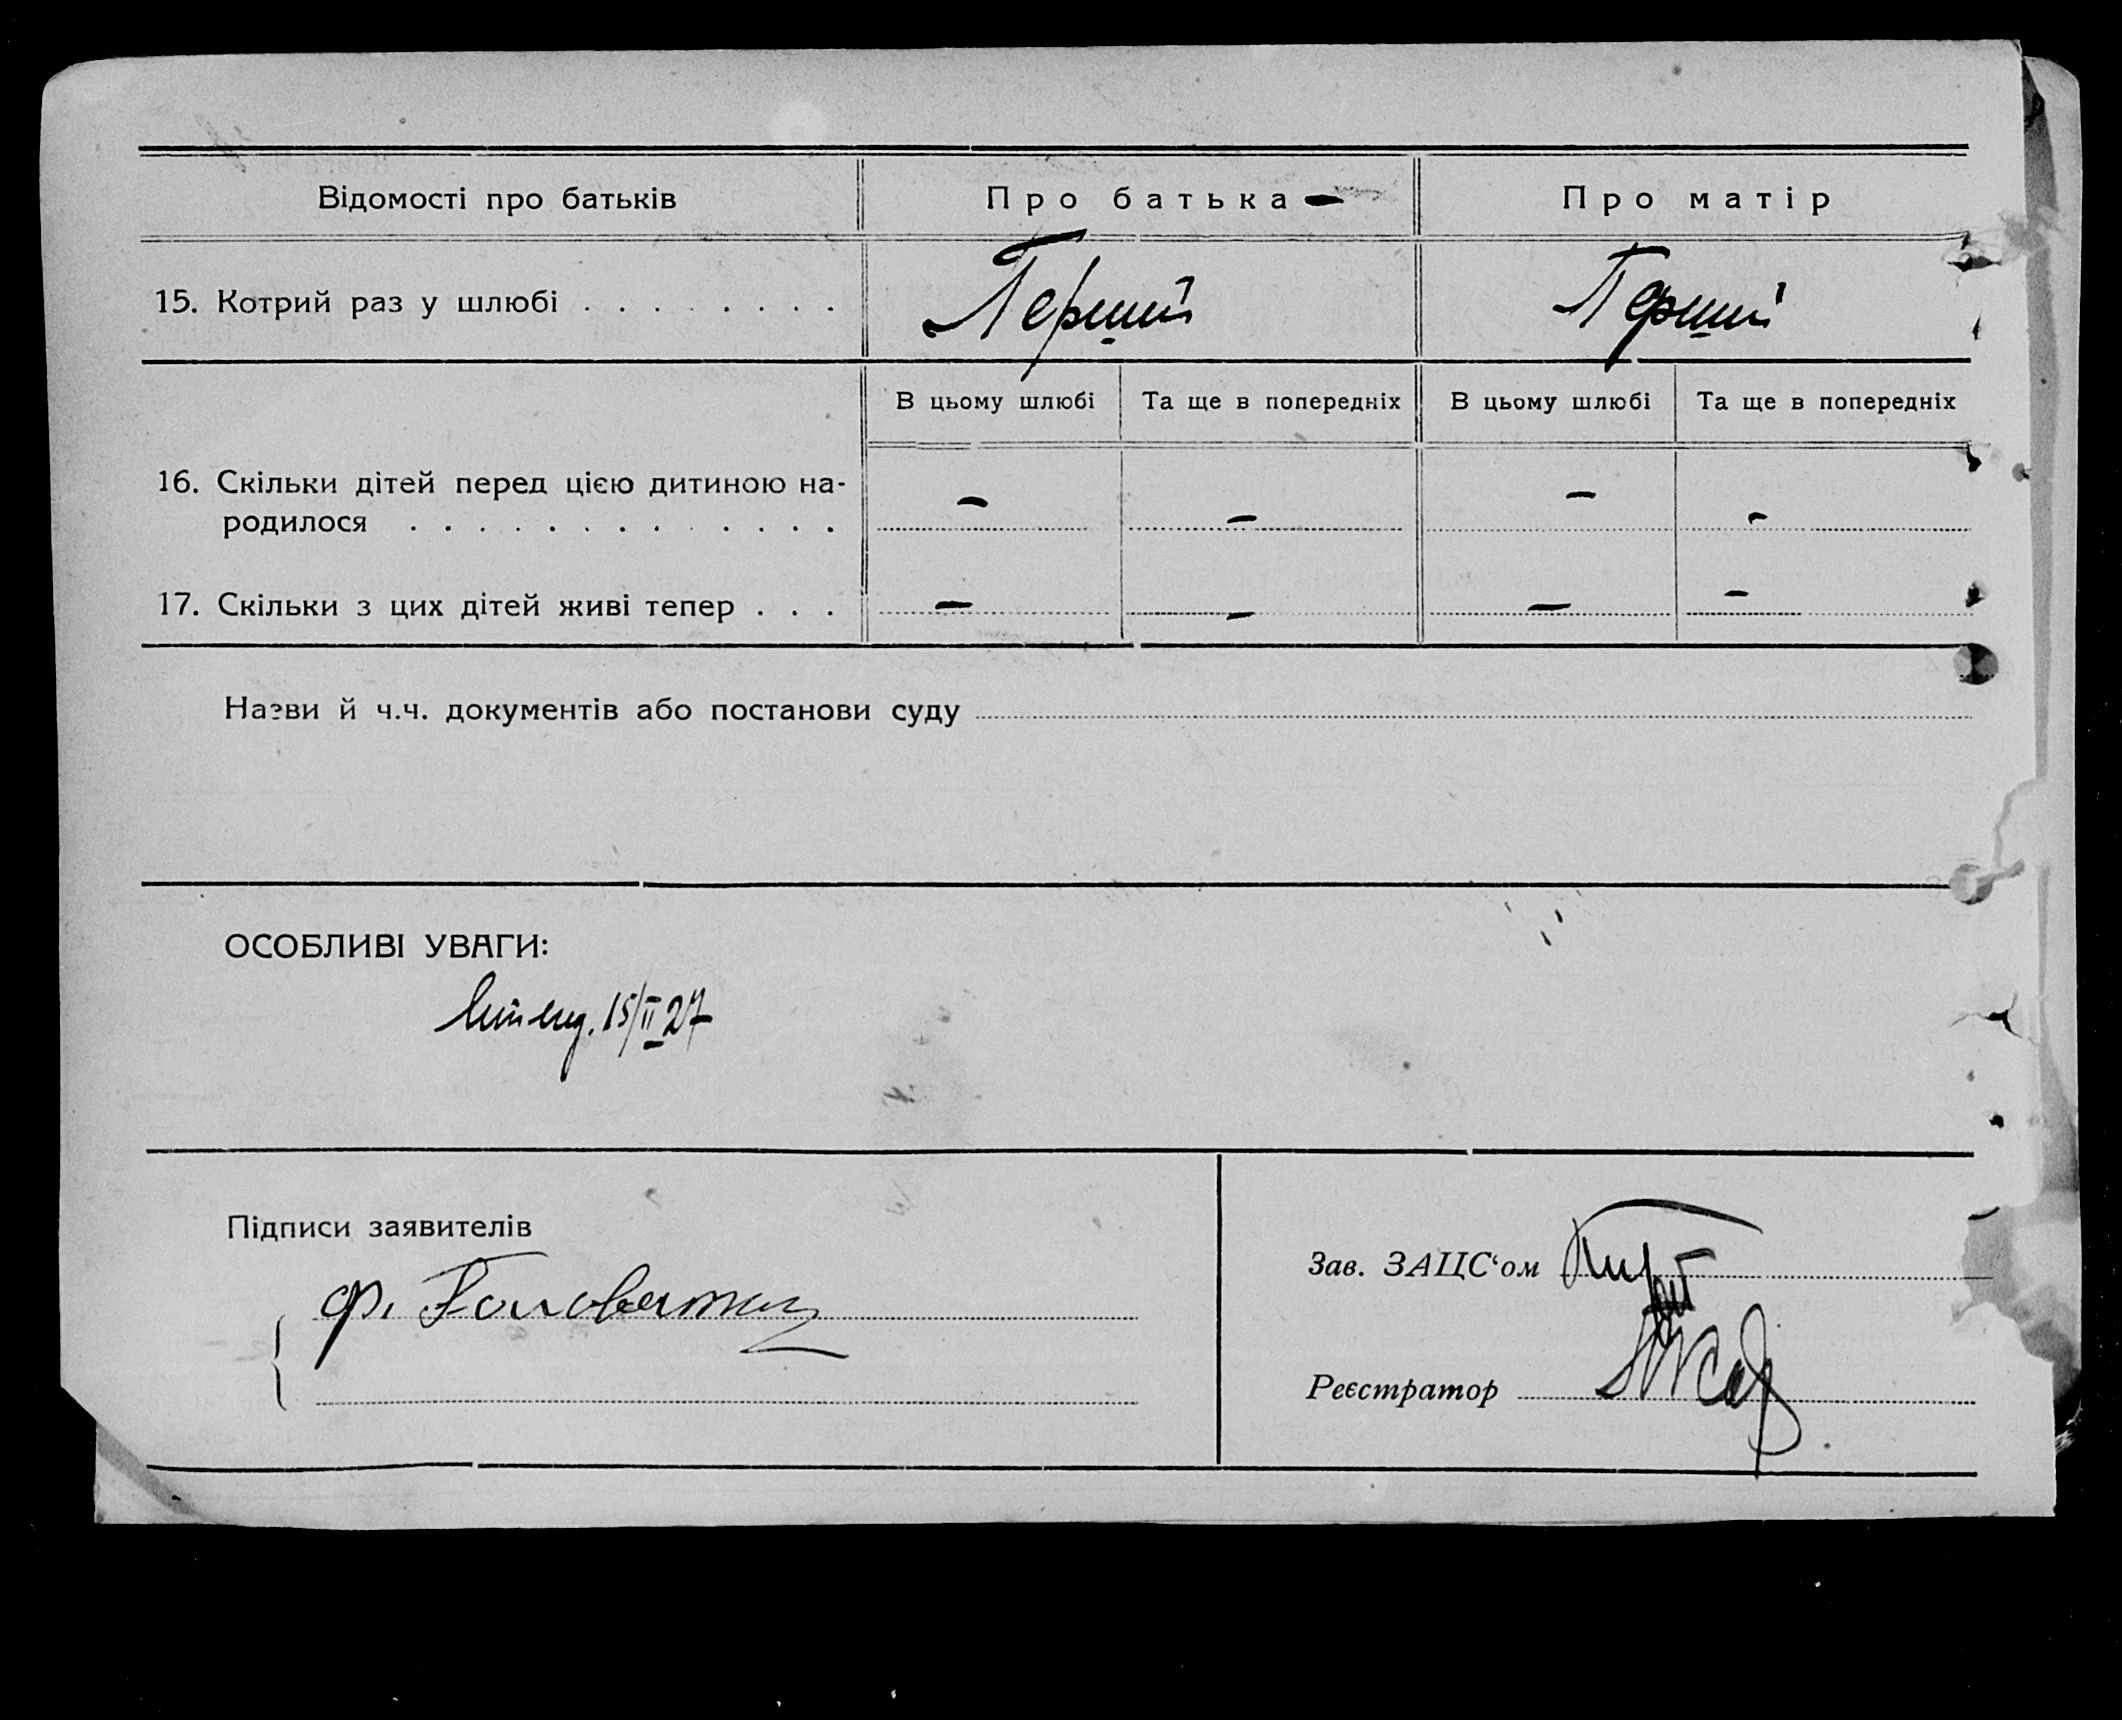 Відомості про батьків
Про батька
Про матір
15. Котрий раз у шлюбі . . . . . . . .
Перший
Перший
В цьому шлюбі
Та ще в попередніх
В цьому шлюбі
Та ще в попередніх
16. Скільки дітей перед цією дитиною на-
родилося . . . . . . . . . . . . .
–
–
–
–
17. Скільки з цих дітей живі тепер . . .
–
–
–
–
Назви й ч.ч. документів або постанови суду
ОСОБЛИВІ УВАГИ:
15/II 27
Підписи заявителів
Ф. Головатюк
Зав. ЗАЦС‘ом
Реєстратор